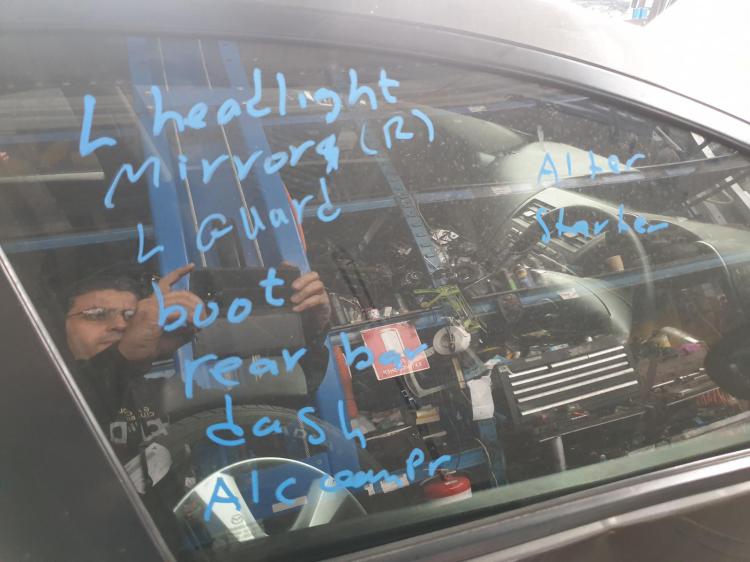 L headlight
Mirrors (R)
L Guard
boot
rear bar
dash
A/c compr
Alter
Starter